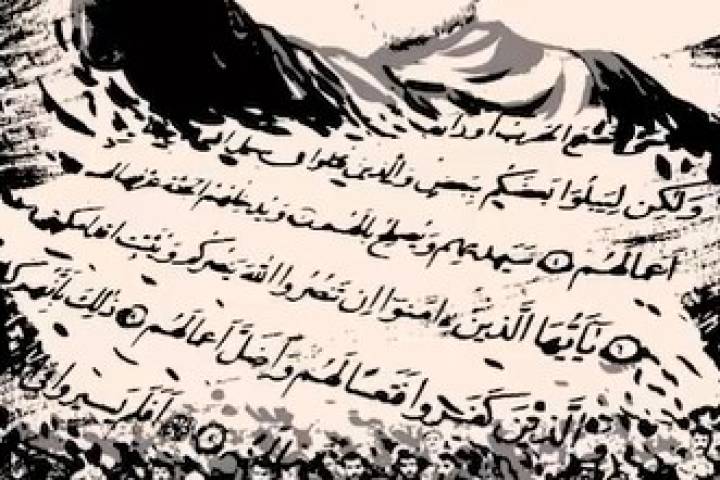 تضع الحرب
وَلَكِن لِيَبْلُوَا بَعْضَكُم بِبَعْضٍ وَالَّذِينَ قتلوا في سبيل الله
أعمالهم سيهديهم ويصلح بالهم ويدخلهم الجنة عرفها لهم
يَأَيُّهَا الَّذِينَ ءَامَنُوا إِن تَنصُرُوا اللَّهَ يَنصُرْكُمْ وَيُثَبِّتْ أقدامكم
الَّذِينَ كَفَرُوا فَتَعْسًا لَهُمْ وَأَضَلَّ أَعْمَالَهُمْ ذَلِكَ بِأَنَّهُمْ
أَفَلَمْ يَسِيرُوا فِي